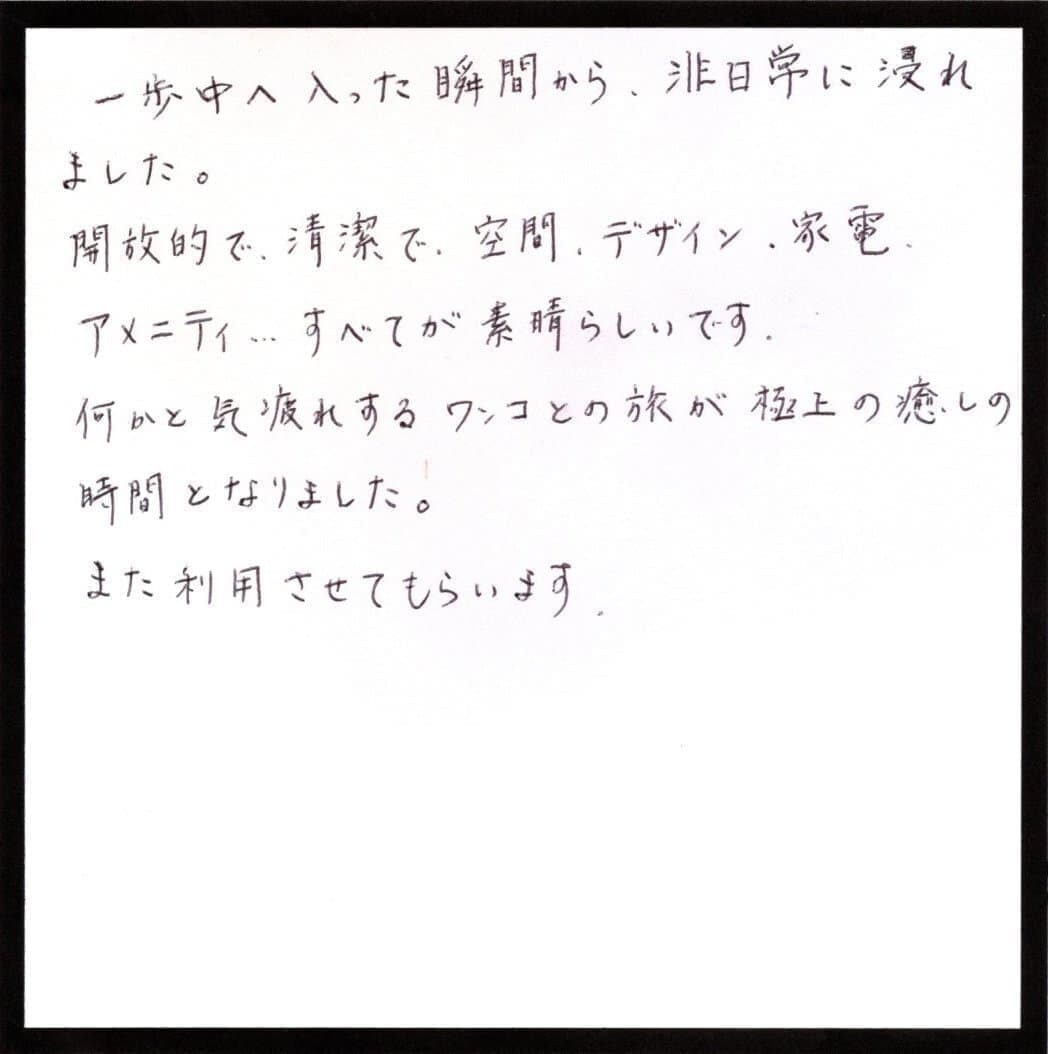 一歩中へ入った瞬間から、非日常に浸れ
ました。
開放的で、清潔で、空間、デザイン、家電、
アメニティ…すべてが素晴らしいです。
何かと気疲れするワンコとの旅が極上の癒しの
時間となりました。
また利用させてもらいます。